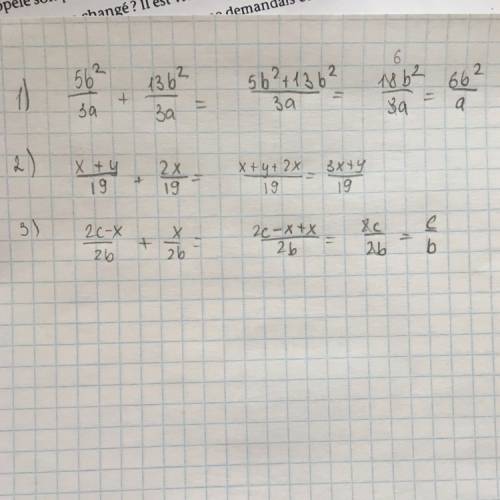 changé ? Il est
demandais
1) 5b²/3a + 13b²/3a = 5b²+13b²/3a = 6 18b²/3a = 6b²/a
2) x+y/19 + 2x/19 = x+y+2x/19 = 3x+y/19
3) 2c-x/2b + x/2b = 2c-x+x/2b = 2c/2b = c/b